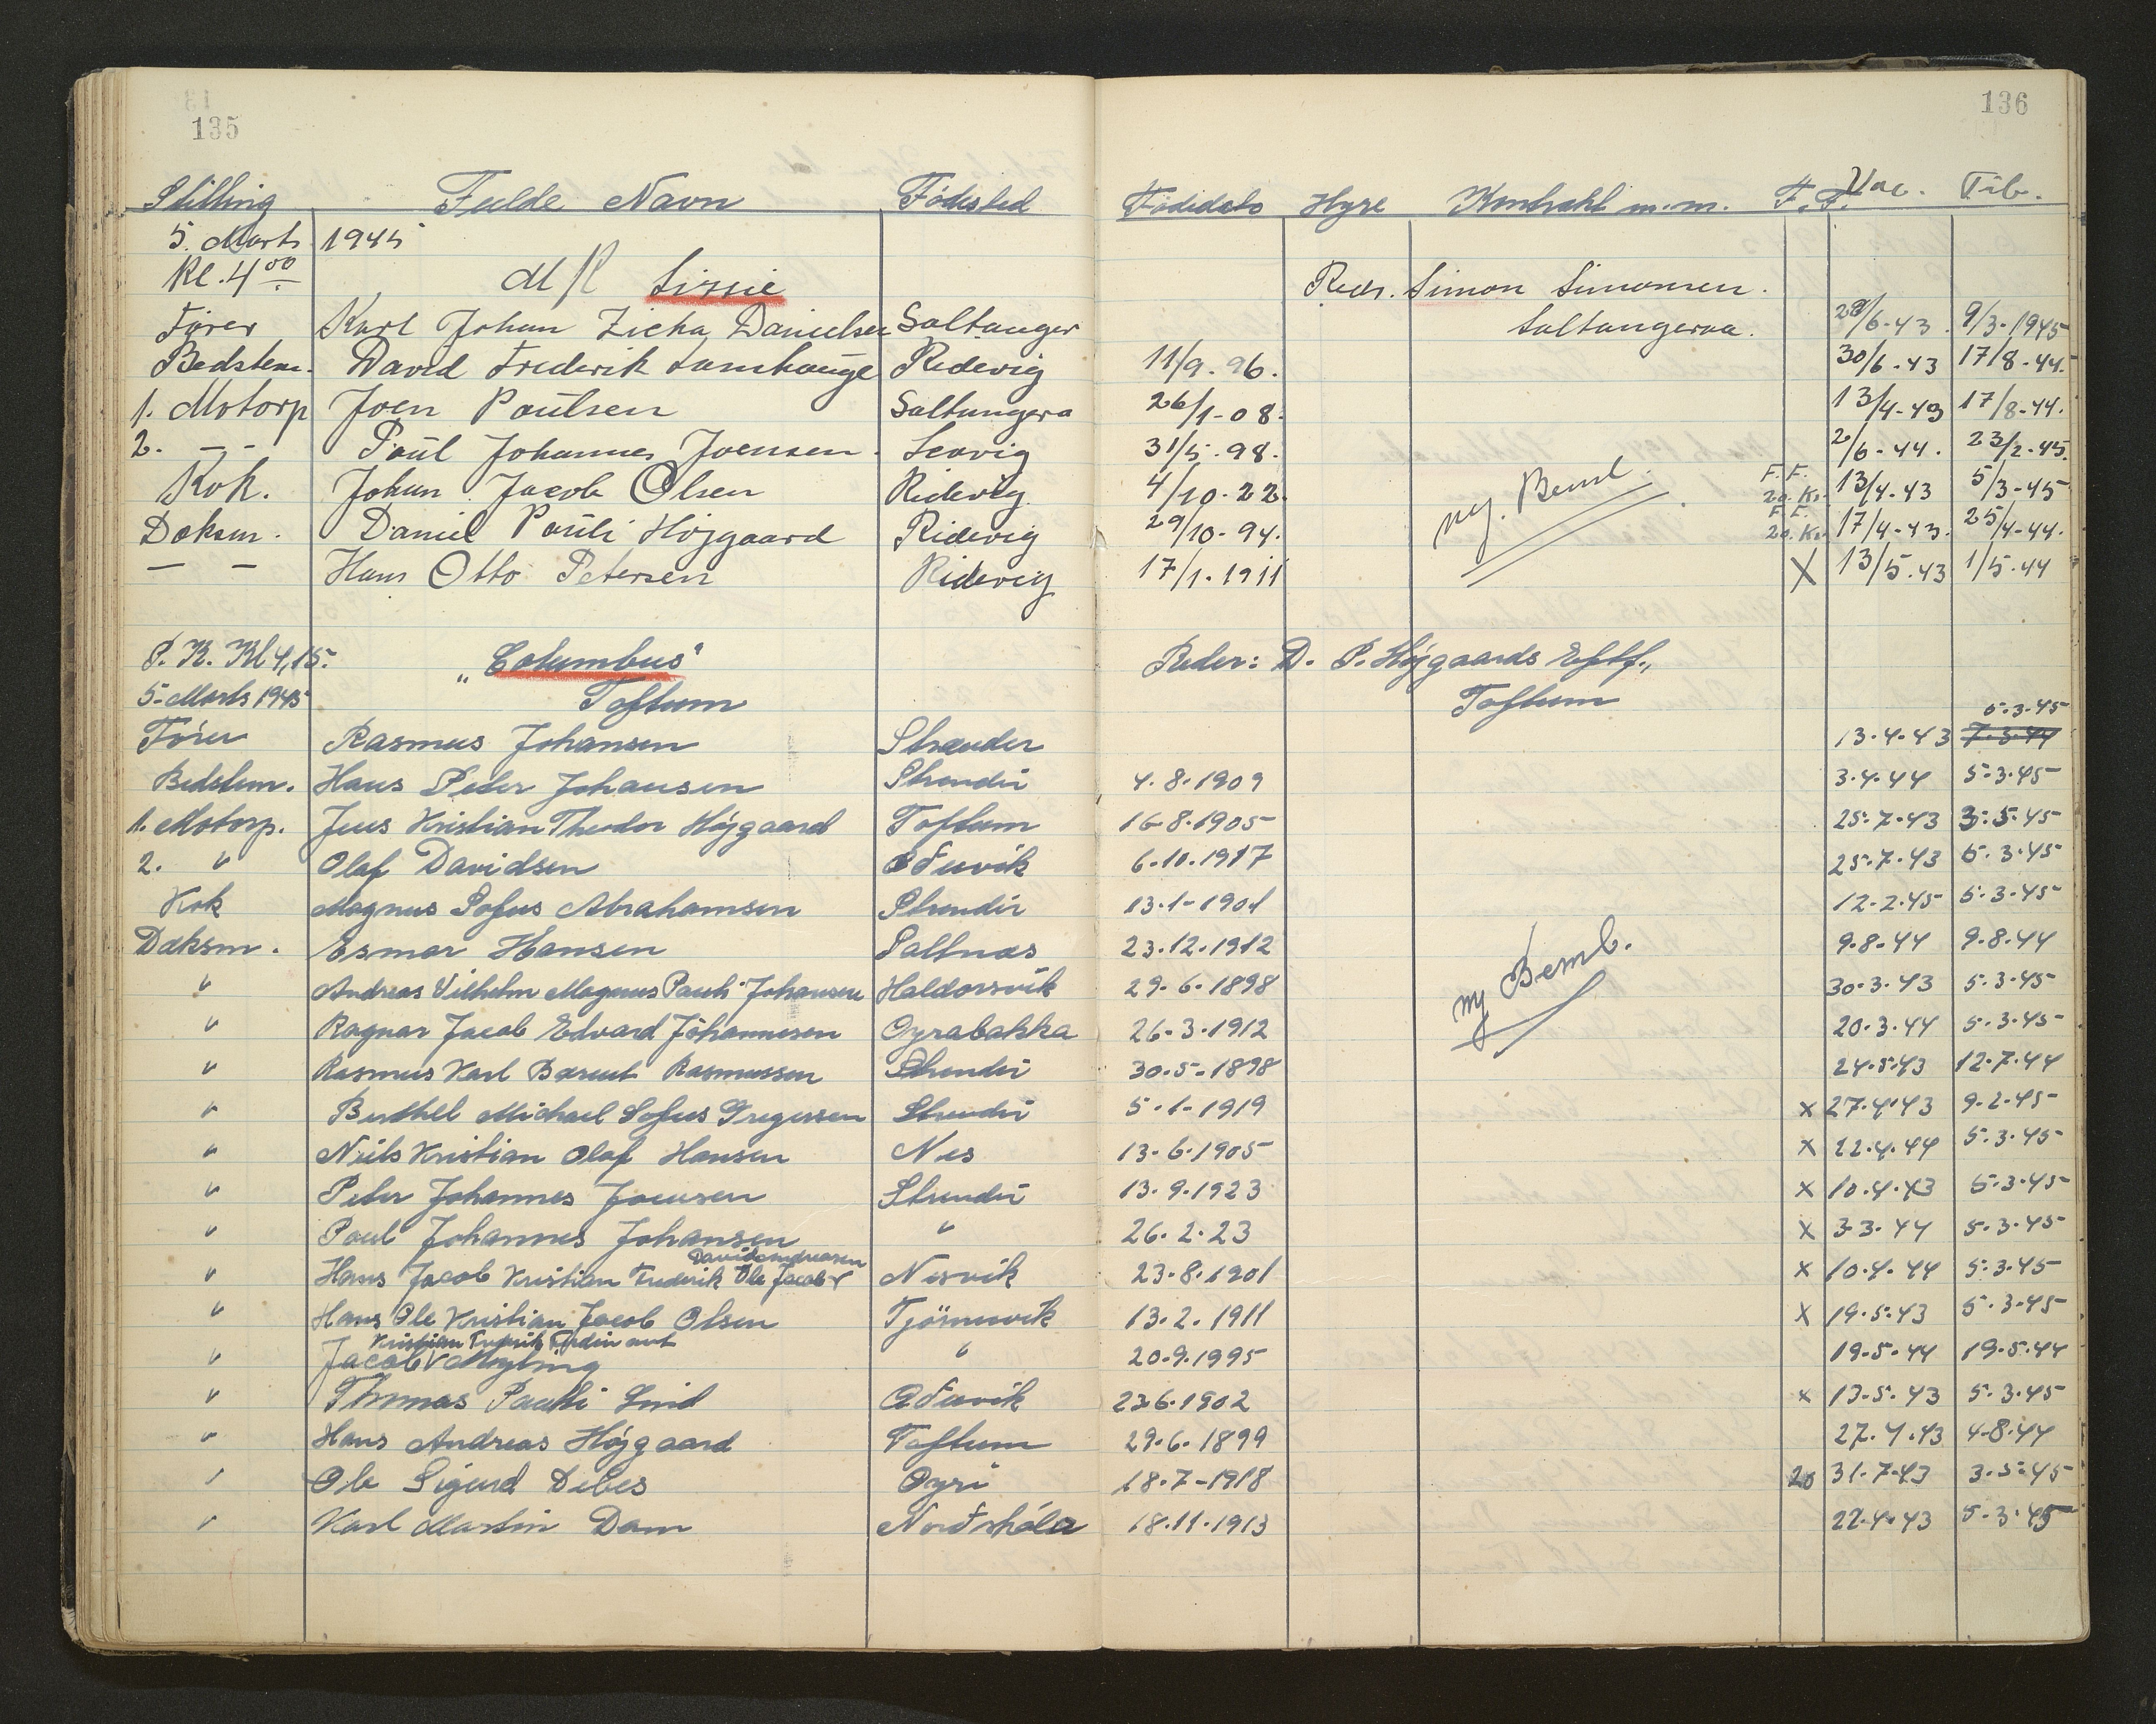 135
136
Stilling Fulde Navn Fødested Fødedato Hyre Kontrakt m.m. F.F. Vac. Tub.
5. Marts 1945
Kl. 4 00 M/K Lissie Reder. Simon Simonsen.
Saltangeraa.
Fører Karl Johan Zicka Danielsen Saltanger 28/6-43. 9/3-1945
Bedstem. David Frederik Lamhauge Ridevig 11/9. 96. 30/6-43 17/8-44.
1. Motorp Joen Poulsen Saltangera 26/1-08. 13/4-43 17/8-44.
2. — — Poul Johannes Joensen. Lervig 31/5-98. 2/6-44. 23/2-45.
Kok. Johan Jacob Olsen Ridevig 4/10-22. ny. Beml. F.F. 20. Kr. 13/4-43 5/3-45
Doksm. Daniel Pouli Højgaard Ridevig 29/10-94. F.F. 20. Kr. 17/4-43. 25/4-44.
— — Hans Otto Petersen Ridevig 17/1. 1911 X 13/5.43 1/5.44
P. K. Kl 4,15. „Columbus“ Reder: D. P. Højgaards Eftf.,
5. Marts 1945 Toftum Toftum
5.3.45
Fører Rasmus Johansen Strænder 13.4.43 7.3.44
Bedstem. Hans Peter Johansen Strendir 4.8.1909 3.4.44 5.3.45
1. Motorp. Jens Kristian Theodor Højgaard Toftum 16.8.1905 25.7.43 3.5.45
2. " Olaf Davidsen Eðuvík 6.10.1917 25.7.43 5.3.45
Kok Magnus Sofus Abrahamsen Strendir 13.1-1901 12.2.45 5.3.45
Dæksm. Esmar Hansen Saltnæs 23.12.1912 ny Bemb. 9.8.44 9.8.44
" Andreas Vilhelm Magnus Pauli Johansen Haldorsvík 29.6.1898 30.3.43 5.3.45
" Ragnar Jacob Edvard Jóhannesen Oyrabakka 26.3.1912 20.3.44 5.3.45
" Rasmus Karl Barent Rasmussen Strendir 30.5.1898 24.5.43 12.7.44
" Berthel Michael Sofus Gregersen Strendir 5.1-1919 x 27.4.43 9.2.45
" Niels Kristian Olaf Hansen Nes 13.6.1905 x 22.4.44 5.3.45
" Peter Johannes Joensen Strendir 13.9.1923 x 10.4.43 5.3.45
" Poul Johannes Johansen " 26.2.23 x 3.3.44 5.3.45
Davidandreasen
" Hans Jacob Kristian Frederik Ole Jacob Nesvík 23.8.1901 x 10.4.44 5.3.45
" Hans Ole Kristian Jacob Olsen Tjörnuvík 13.2.1911 x 19.5.43 5.3.45
Kristian Fredrik Ferdinant
" Jacob Mogling " 20.9.1995 19.5.44 19.5.44
" Thomas Pauli Lind Eðuvík 23.6.1902 x 13.5.43 5.3.45
" Hans Andreas Højgaard Toftum 29.6.1899 27.4.43 4.8.44
" Ole Sigurd Debes Oyri 18.7-1918 20 31.7.43 3.5.45
" Karl Martin Dam Norðskála 18.11.1913 22.4.43 5.3.45